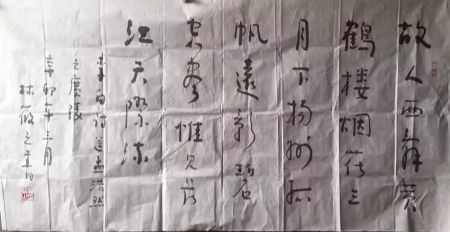 故人西辞黄
鹤楼烟花三
月下扬州孤
帆遠影碧
空尽惟見长
江天际流
李白诗送孟浩然
之廣陵
辛卯年三月
林筱之